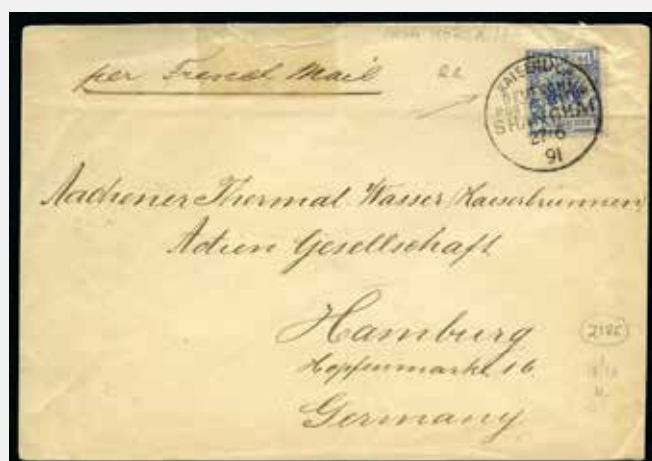 per French Mail
SHANGHAI
27/6
91
Aachener Thermal Wasser (Kaiserbrunnen)
Actien Gesellschaft
Hamburg
Hopfenmarkt 16
Germany
2185